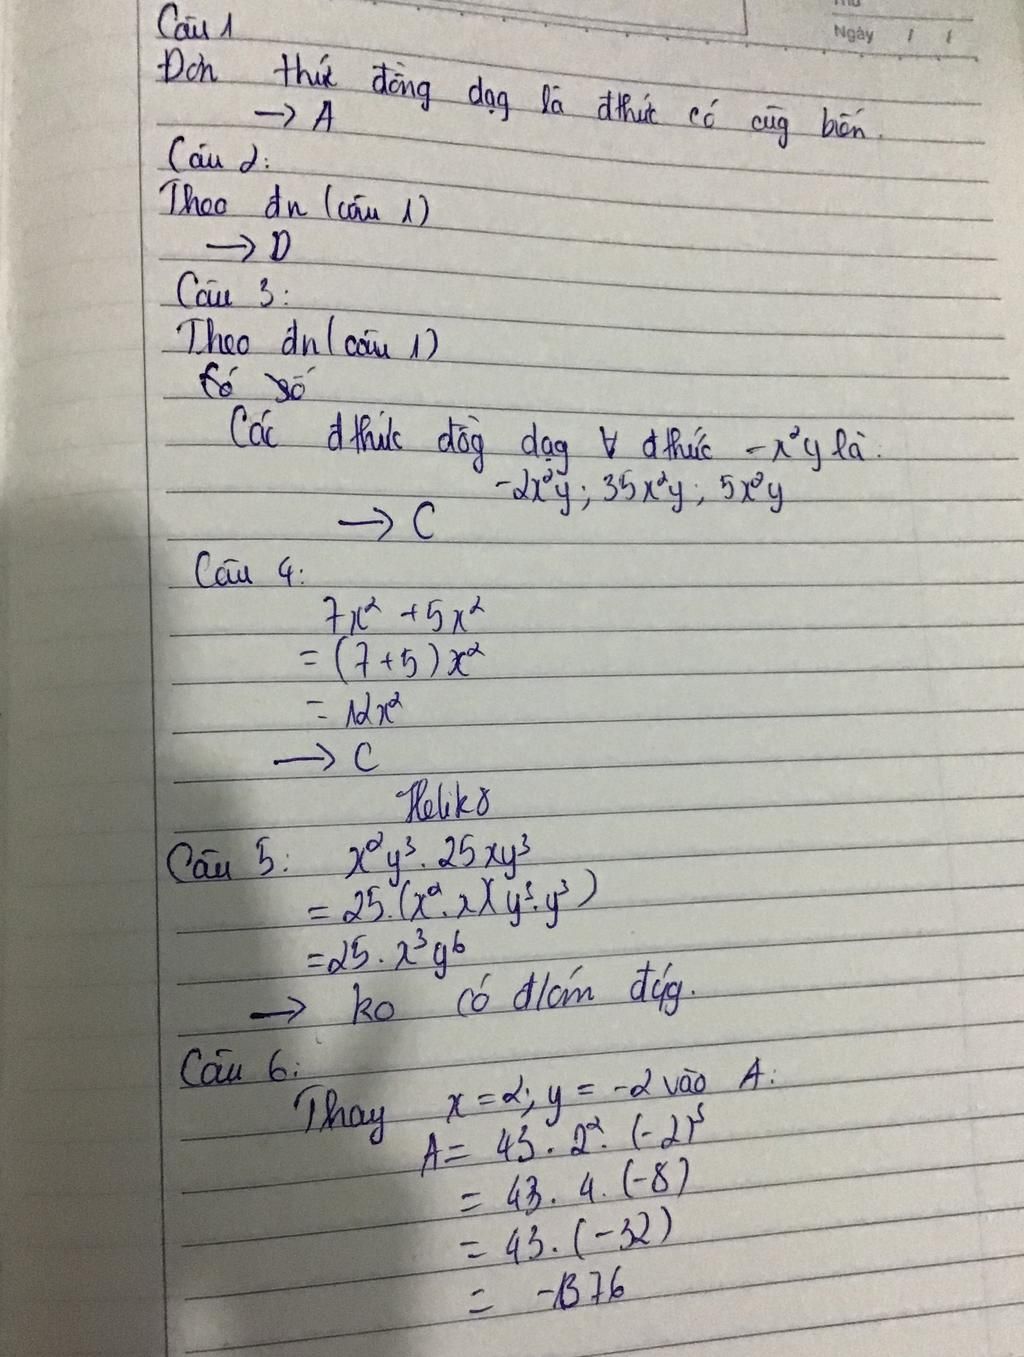 Thứ
Ngày / /
Câu 1
Đơn thức đồng dạng là đthức có cùg biến.
→ A
Câu 2:
Theo đn (câu 1)
→ D
Câu 3:
Theo đn (câu 1)
số
Các đthức đồg dạg ∀ đthức -x²y là:
-2x²y; 35x²y; 5x²y
→ C
Câu 4:
7x² + 5x²
= (7+5)x²
= 12x²
→ C
Helik8
Câu 5: x²y³. 25xy³
= 25.(x².x)(y³.y³)
= 25. x³y⁶
→ ko có đ/án đúg.
Câu 6:
Thay x = 2; y = -2 vào A:
A = 43. 2². (-2)³
= 43. 4. (-8)
= 43. (-32)
= -1376